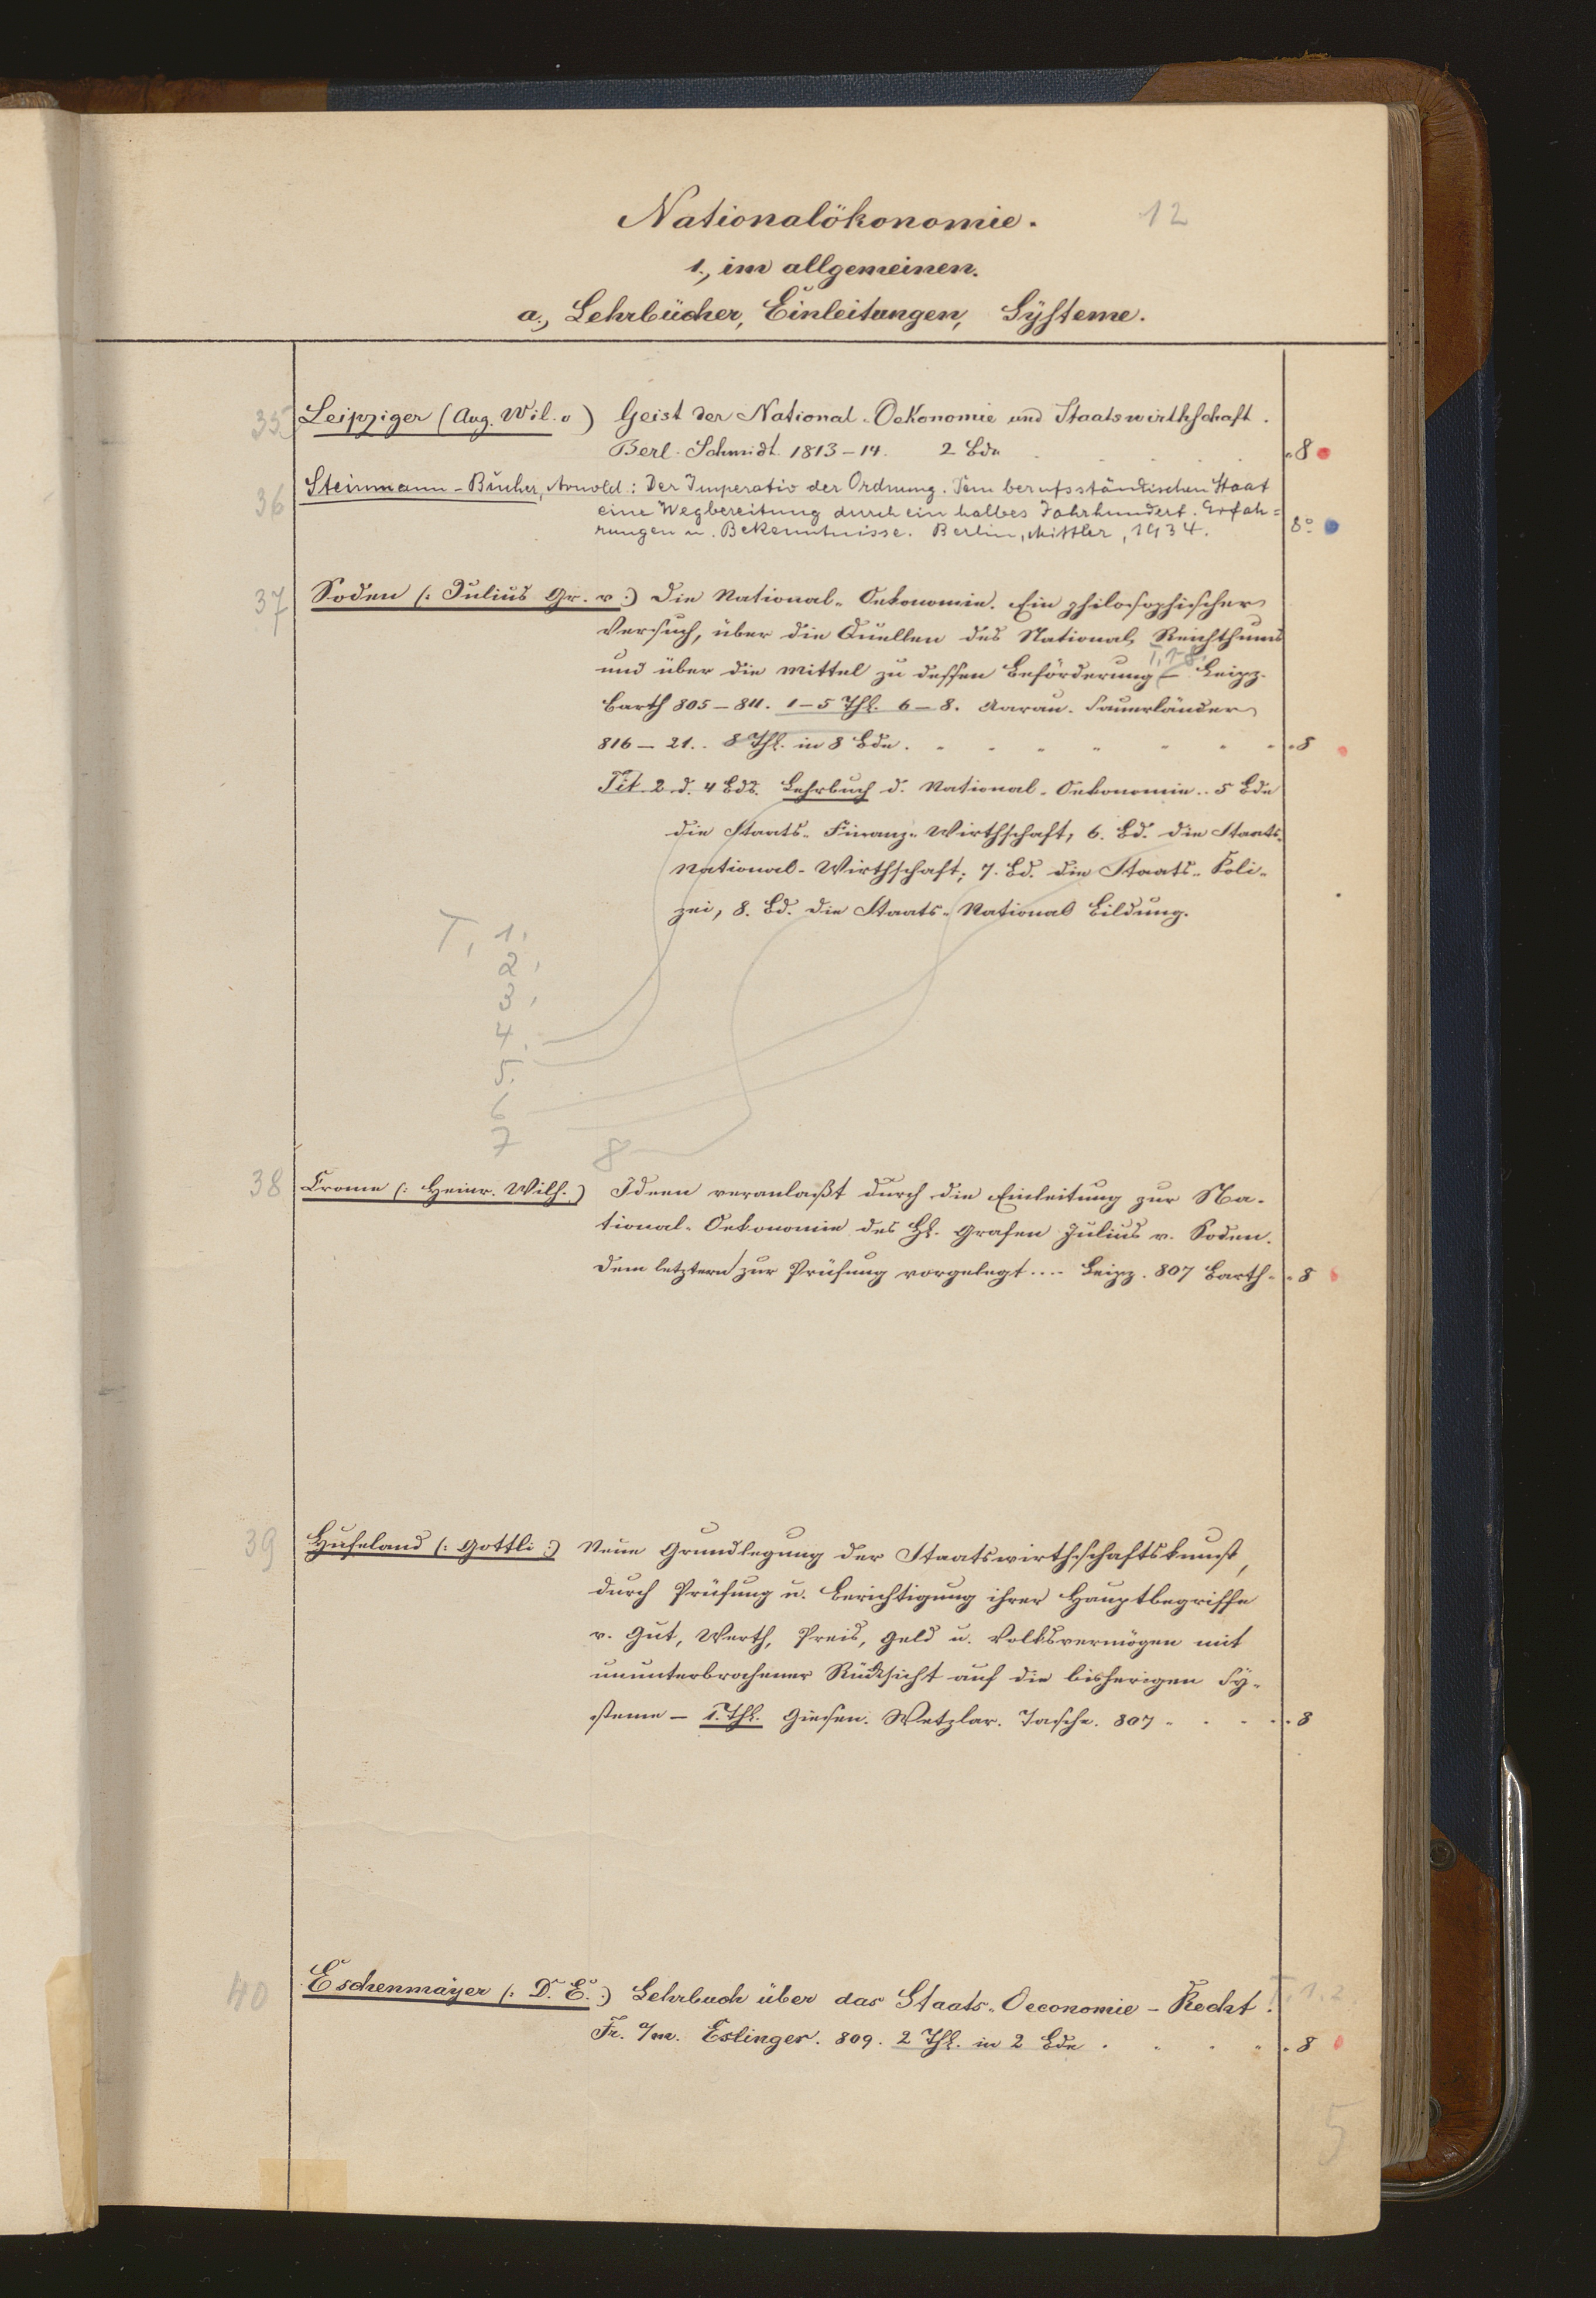 Nationalökonomie. 12
1., im allgemeinen.
a., Lehrbücher, Einleitungen, Systeme.
35 Leipziger (Aug. Wil. v) Geist der National-Oekonomie und Staatswirthschaft.
Berl. Schmidt. 1813-14. 2 Bde . . . . 8
36 Steinmann-Bücher, Arnold: Der Imperativ der Ordnung. Dem berufsständischen Staat
eine Wegbereitung durch ein halbes Jahrhundert. Erfah=
rungen u. Bekenntnisse. Berlin, Mittler, 1934. 8°
37 Soden (: Julius Gr. v :) Die National-Oekonomie. Ein philosophischer
Versuch, über die Quellen des National Reichthums
T, 1-8,
und über die Mittel zu dessen Beförderung - Leipz.
Barth 805-811. 1-5 Thl. 6-8. Aarau. Sauerländer
816-21. . 8 Thl. in 8 Bde. . . . . . . . 8
Tit 2 d. 4 Bds. Lehrbuch d. National-Oekonomie. . 5 Bde
die Staats-Finanz-Wirthschaft, 6. Bd. die Staats-
National-Wirthschaft; 7. Bd. die Staats-Poli-
zei, 8. Bd. die Staats-National Bildung.
T, 1,
2,
3,
4.
5.
6
7 8
38 Crome (: Heinr. Wilh. :) Ideen veranlaßt durch die Einleitung zur Na-
tional-Oekonomie des H. Grafen Julius v. Soden.
Dem letztern zur Prüfung vorgelegt .... Leipz. 807 Barth. . 8
39 Hufeland (: Gottli :) Neue Grundlegung der Staatswirthschaftskunst,
durch Prüfung u. Berichtigung ihrer Hauptbegriffe
v. Gut, Werth, Preis, Geld u. Volksvermögen mit
ununterbrochener Rücksicht auf die bisherigen Sy-
steme - 1. Thl. Giesen. Wetzlar. Tasche. 807 . . . . 8
40 Eschenmayer (: D. E. :) Lehrbuch über das Staats-Oeconomie-Recht. T, 1, 2
Fr. a/m. Eslinger. 809. 2 Thl. in 2 Bde . . . . 8
5